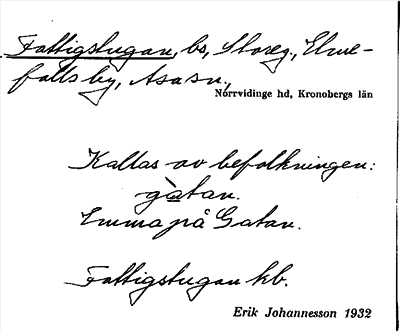 Fattigstugan, bs, Storeg., Elme-
falls by, Asa sn.,
Norrvidinge hd, Kronobergs län
Kallas av befolkningen:
gàtan.
Emma på Gatan.
Fattigstugan kb.
Erik Johannesson 1932